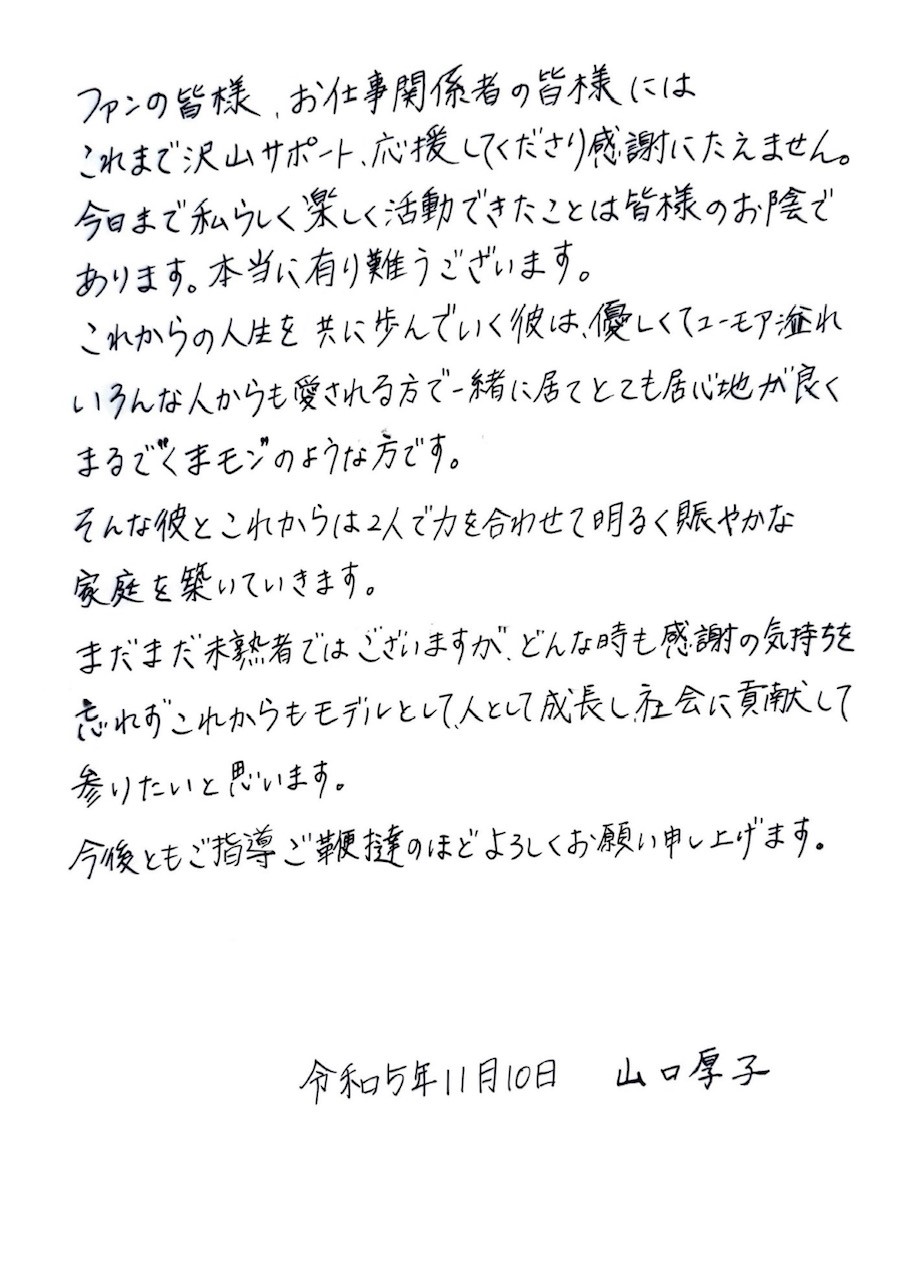 ファンの皆様、お仕事関係者の皆様には
これまで沢山サポート、応援してくださり感謝にたえません。
今日まで私らしく楽しく活動できたことは皆様のお陰で
あります。本当に有り難うございます。
これからの人生を共に歩んでいく彼は、優しくてユーモア溢れ
いろんな人からも愛される方で一緒に居てとても居心地が良く
まるで“くまモン”のような方です。
そんな彼とこれからは2人で力を合わせて明るく賑やかな
家庭を築いていきます。
まだまだ未熟者ではございますが、どんな時も感謝の気持ちを
忘れずこれからもモデルとして、人として成長し、社会に貢献して
参りたいと思います。
今後ともご指導ご鞭撻のほどよろしくお願い申し上げます。
令和5年11月10日 山口厚子